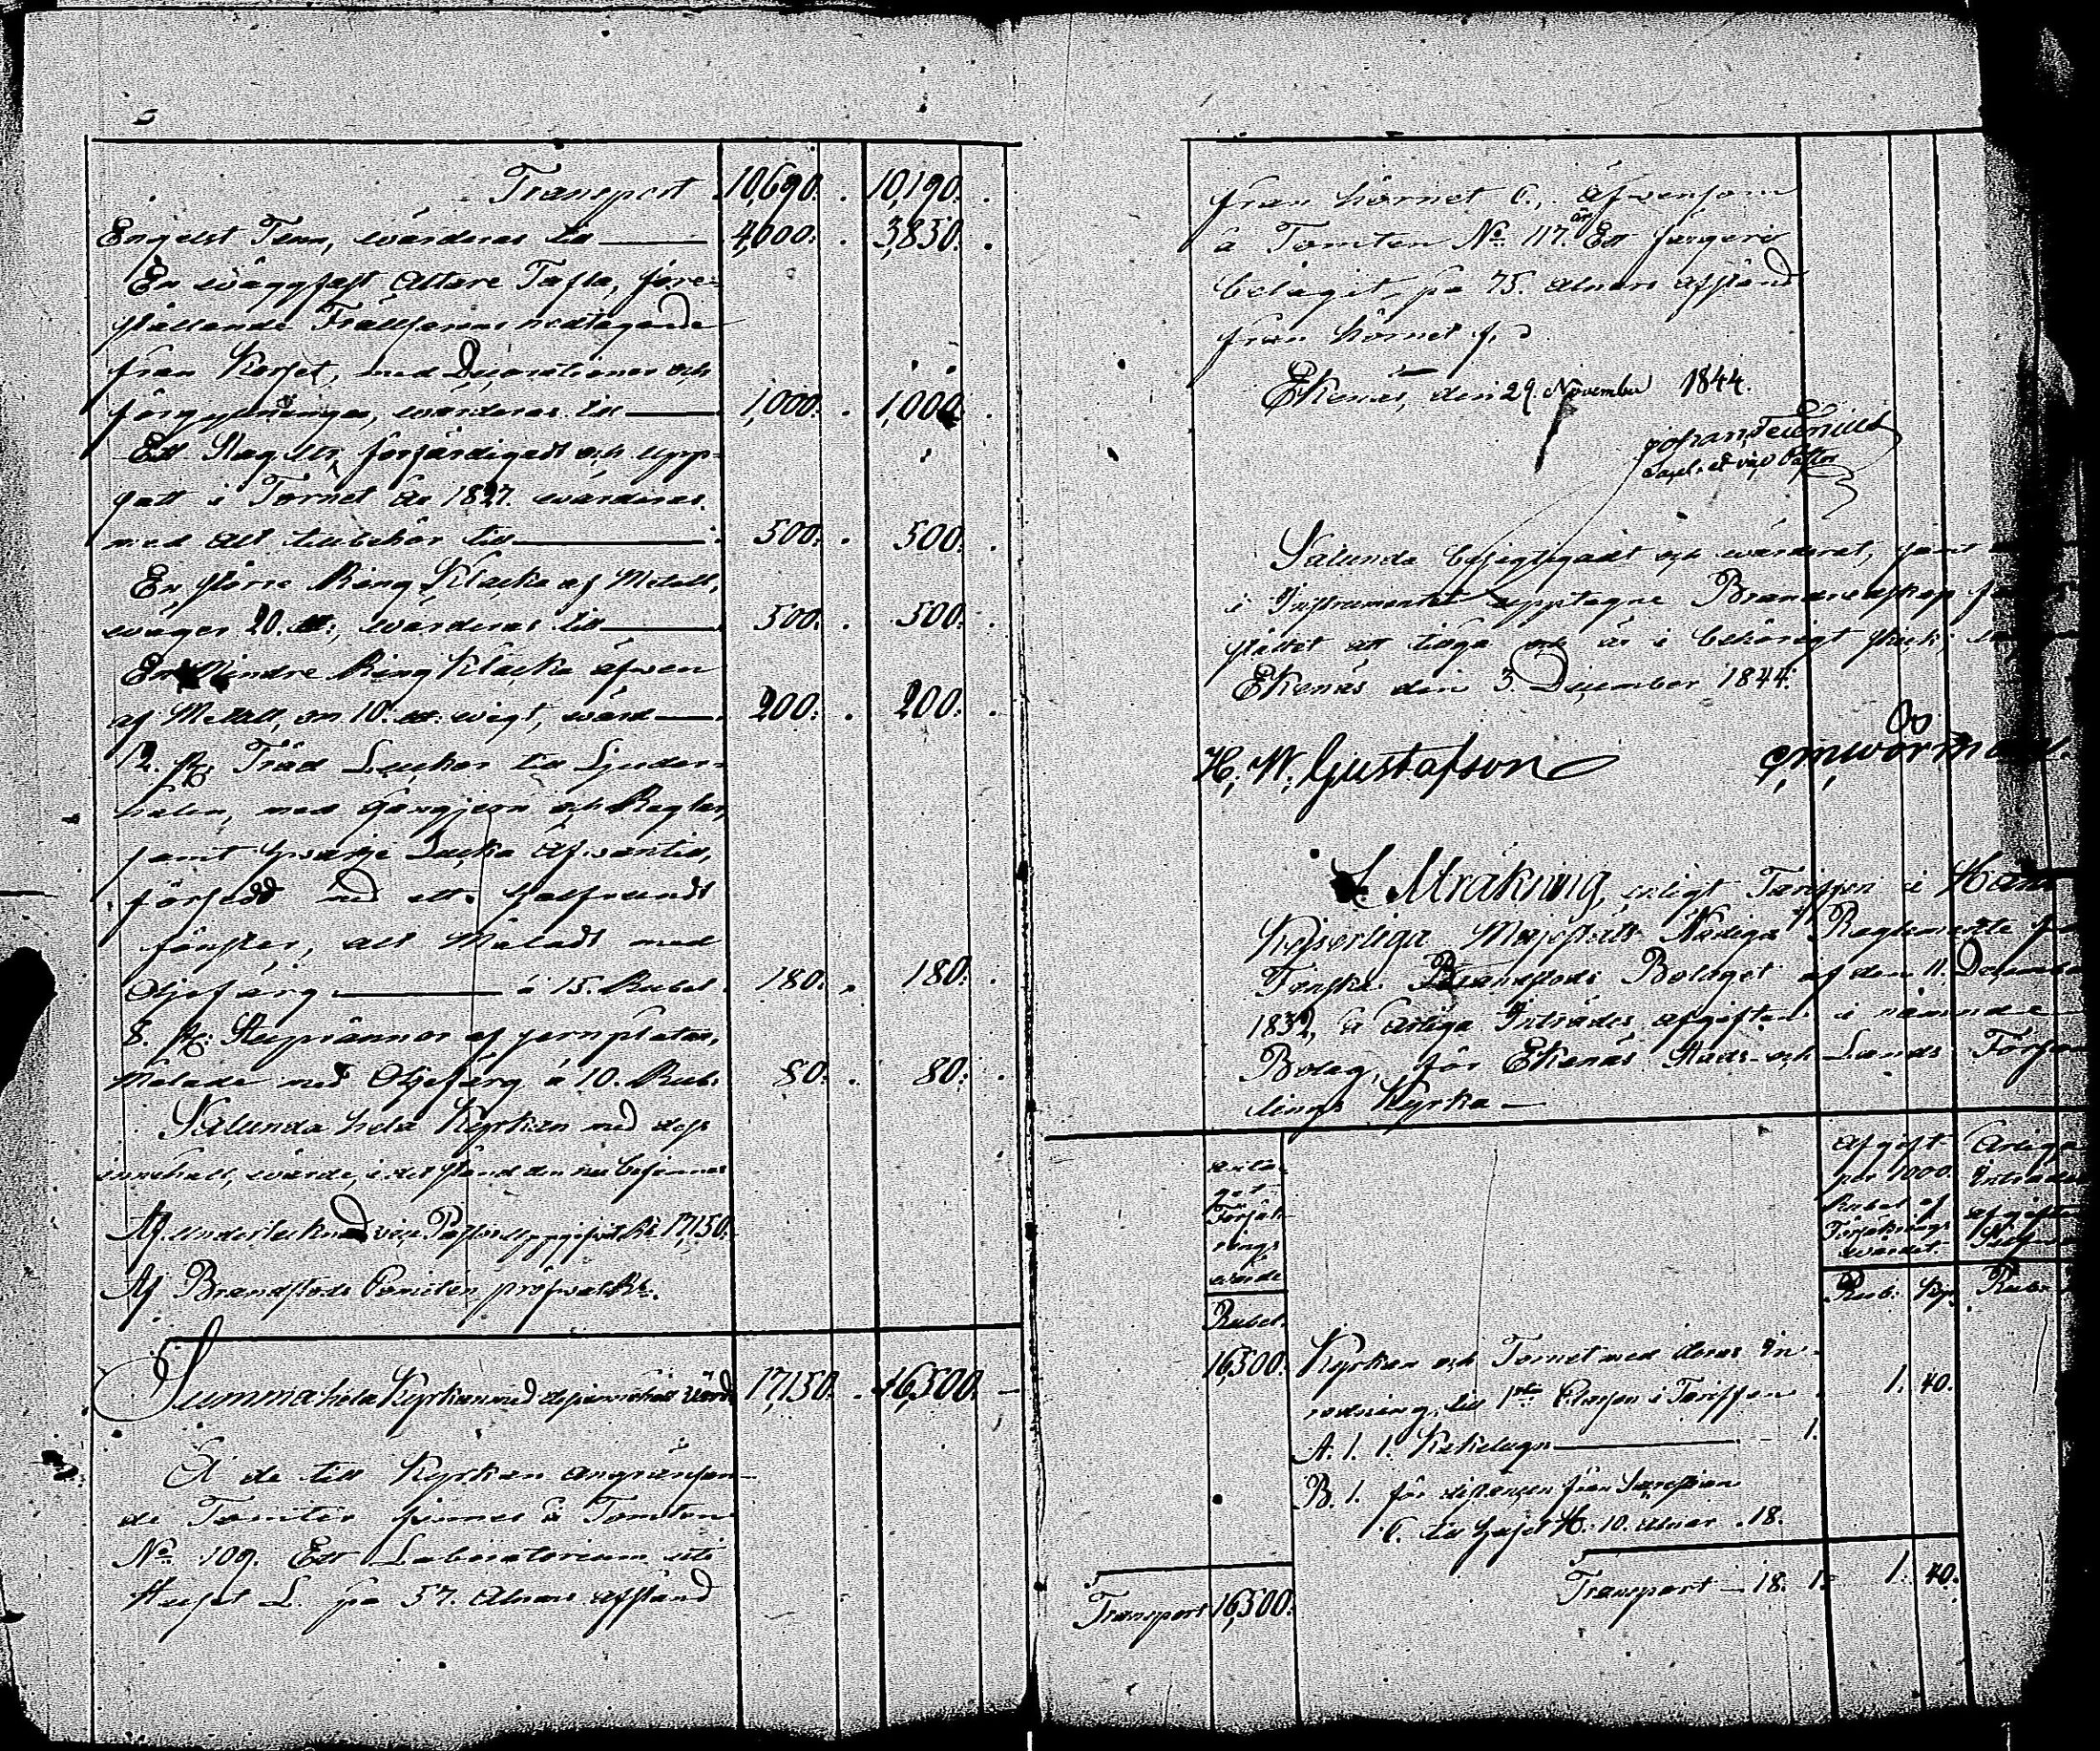 Transport 10,690. 10,190.
Engelst Tenn, wärderas till 4,000. 3,830.
En wäggfast Altare Tafla, före-
ställande Frälsarens nedtagande
från Korset, med Decorationer och
förgyllningar, wärderas till 1,000. 1,000.
Ett Slag Ur, förfärdigadt och upp-
satt i Tornet år 1827. wärderas
med allt tillbehör till 500. 500.
En större Ring Klocka af Metall,
wäger 20. wärderas till 500. 500.
En Mindre Ring Klocka äfwen
af Metall, om 10. wigt, wärd 200. 200.
12. st. Träd Luckor till Ljuder-
hålen, med Gångjern och Reglar,
samt hwarje Lucka Ofwantill,
försedd med ett halfrundt
fönster, allt Måladt med
Oljefärg à 15. Rubel 180. 180.
8. st. Stuprännor af jernplåtar,
Målade med Oljefärg à 10. Rub. 80. 80.
Sålunda hela Kyrkan med dess
innehåll, wärde, i det stånd den nu befinnes
Af undertecknad vice Pastor uppgifwit Rb. 17,150.
Af Brandstods Comiten pröfwat Rb.
Summa hela Kyrkan med dess innehåll Värde 17,150. 16,500.
Å de till Kyrkan angränsan-
de Tomter finnes å Tomten
No. 109. Ett Laboratorium uti
Huset L. på 57. Alnars afstånd
från hörnet C., äfwensom
å Tomten No. 117. är Ett färgeri
belägit på 75. Alnars afstånd
från hörnet f.
Ekenäs, den 29. November 1844.
Johan Tennius
Capl. et vice Pastor
Sålunda besigtigadt och wärderat, samt
i Instrumentet upptagne Brandredskap
stället att tillgå och är i behörigt skick;
Ekenäs den 3. December 1844.
H. W. Gustafson
Uträkning, enligt Tariffen i Hans
Kejserliga Majestäts Nådiga Reglemente
Finska Brandstods Bolaget af den 11. December
1832, å årliga Inträdes afgiften i nämnde
Bolag, för Ekenäs Stads- och Lands Försam
lings Kyrka
Försäk-
rings
wärde
Rubel.
Afgift
per 1000
Rubel af
Försäkrings
wärdet.
Årlig
Inträdes
afgiften
Rub. Kop. Rub.
16,500. Kyrkan och Tornet med deras in-
redning, till 1sta Classen i Tariffen 1. 40.
A. 1. 1. Kakelugn 1.
B. 1. för distancen från Sacristian
C. till huset H. 10. alnar 18.
Transport 16,500. Transport 18. 1. 1. 40.